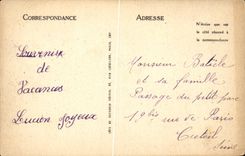 CORRESPONDANCE
Souvenir
de
Vacances
Lucien Joyeux
ADRESSE
N'écrire que sur
le côté réservé à
la correspondance
Monsieur
et sa famille
Passage du petit parc
19 bis rue de Paris
Creteil
Seine